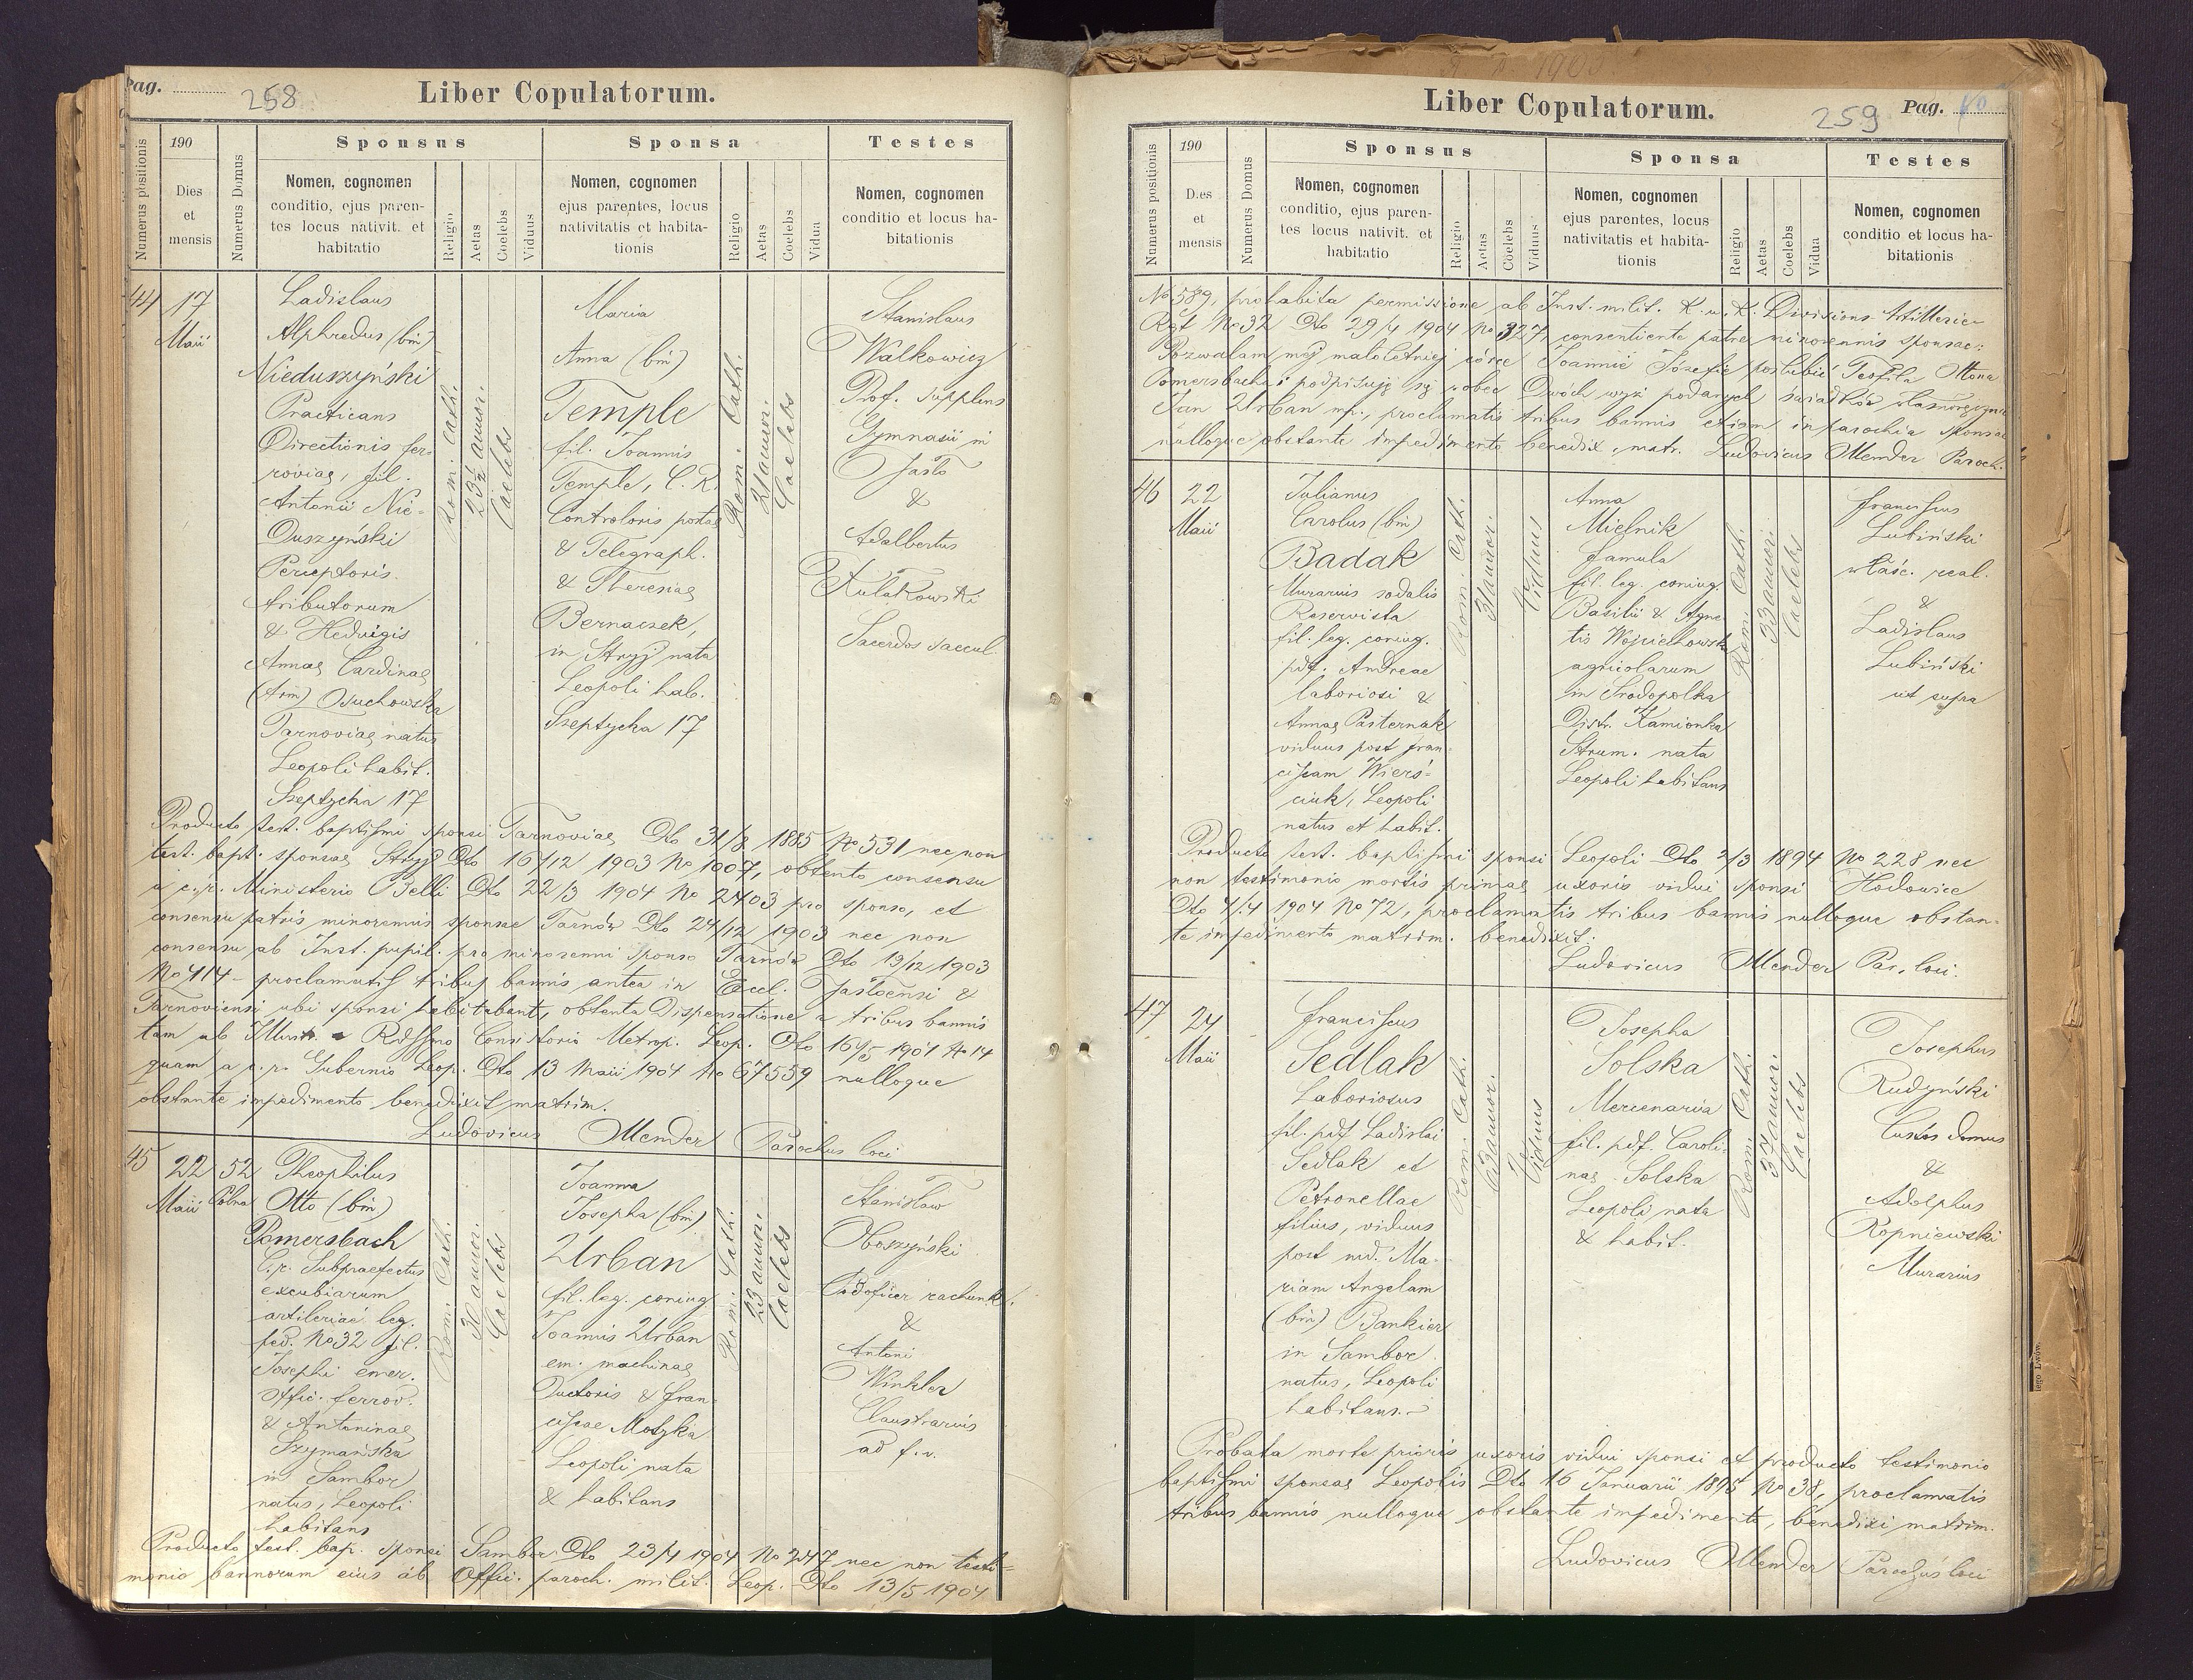 Pag. 258
Liber Copulatorum.
Numerus positionis
190
Dies
et
mensis
Numerus Domus
Sponsus
Nomen, cognomen
conditio, ejus paren-
tes locus nativit. et
habitatio
Religio
Aetas
Coelebs
Viduus
Sponsa
Nomen, cognomen
ejus parentes, locus
nativitatis et habita-
tionis
Religio
Aetas
Coelebs
Vidua
Testes
Nomen, cognomen
conditio et locus ha-
bitationis
44
17
Maii
Ladislaus
Alphredus (bin)
Nieduszyński
Practicans
Directionis fer-
roviae, fil.
Antonii Nie-
duszyński
Perceptoris
tributorum
& Hedvigis
Annae Cardinae
(trin) Suchowska
Tarnoviae natus
Leopoli habit.
Szeptycha 17
Rom. Cath.
23½ annor.
Caelebs
Maria
Anna (bin)
Temple
fil. Joannis
Temple, C. R.
Controloris postae
& Telegraph.
& Theresiae
Bernaczek,
in Stryj nata
Leopoli hab.
Szeptycka 17
Rom. Cath.
21 annor.
Caelebs
Stanislaus
Walkowicz
Prof. supplens
Gymnasii in
Jasło
&
Adalbertus
Kułakowski
Sacerdos saecul.
Producto test. baptismi sponsi Tarnoviae Dto 31/8 1885 No 531 nec non
test. bapt. sponsae Stryj Dto 16/12 1903 No 1007, obtento consensu
a c. r. Ministerio Belli Dto 22/3 1904 No 2403 pro sponso, et
consensu patris minorennis sponsae Tarnów Dto 24/12 1903 nec non
consensu ab Inst. pupil. pro minorenni sponso Tarnów Dto 19/12 1903
No 414 - proclamatis tribus bannis antea in Eccl. Jasłoensi &
Tarnoviensi ubi sponsi habitabant, obtenta Dispensatione a tribus bannis
tam ab Illustr. Rdssmo Consistorio Metrop. Leop. Dto 16/5 1904 No 14
quam a c. r. Gubernio Leop. Dto 13 Maii 1904 No 67559 nulloque
obstante impedimento benedixit matrim.
Ludovicus Mender Parochus loci
45
22
Maii
52
Polna
Theophilus
Otto (bin)
Pomersbach
C. r. Subpraefectus
excubiarum
artileriae leg.
ped. No 32 fil.
Josephi emer.
Offic. ferrov.
& Antoninae
Szymańska
in Sambor
natus, Leopoli
habitans
Rom. Cath.
30 annor.
Caelebs
Joanna
Josepha (bin)
Urban
fil. leg. coniug.
Joannis Urban
em. machinae
Ductoris & Fran-
ciscae Motyka
Leopoli nata
& habitans
Rom. Cath.
23 annor.
Caelebs
Stanisław
Oboszyński
Podoficer rachunk.
&
Antoni
Winkler
Claustrarius
ad f. v.
Producto test. bap. sponsi Sambor Dto 23/4 1904 No 247 nec non testi-
monio bannorum eius ab Offic. paroch. milit. Leop. Dto 13/5 1904
Liber Copulatorum.
259 Pag.
Numerus positionis
190
Dies
et
mensis
Numerus Domus
Sponsus
Nomen, cognomen
conditio, ejus paren-
tes locus nativit. et
habitatio
Religio
Aetas
Coelebs
Viduus
Sponsa
Nomen, cognomen
ejus parentes, locus
nativitatis et habita-
tionis
Religio
Aetas
Coelebs
Vidua
Testes
Nomen, cognomen
conditio et locus ha-
bitationis
No 589, prohabita permissione ab Inst. milit. K. u. K. Divisions Artillerie-
Rgt No 32 Dto 29/4 1904 No 327, consentiente patre minorennis sponsae:
Pozwalam mej małoletniej córce Joannie Józefie poślubić Teofila Ottona
Pomersbacha i podpisuję się wobec dwóch wyż podanych świadków własnoręcznie
Jan Urban mp., proclamatis tribus bannis etiam in parochia sponsae
nulloque obstante impedimento benedix. matr. Ludovicus Mender Paroch.
46
22
Maii
Julianus
Carolus (bin)
Badak
Murarius sodalis
Reservista
fil. leg. coniug.
pdf. Andreae
laboriosi &
Annae Pasternak
viduus post Fran-
ciscam Wierś-
ciuk, Leopoli
natus et habit.
Rom. Cath.
31 annor.
Viduus
Anna
Mielnik
famula
fil. leg. coniug.
Basilii & Agne-
tis Wojciechowska
agricolarum
in Środopolka
Distr. Kamionka
Strum. nata
Leopoli habitans
Rom. Cath.
33 annor.
Caelebs
Franciscus
Lubiński
właśc. real.
&
Ladislaus
Lubiński
ut supra
Producto test. baptismi sponsi Leopoli Dto 2/3 1894 No 228 nec
non testimonio mortis primae uxoris vidui sponsi Hodowice
Dto 4/4 1904 No 72, proclamatis tribus bannis nulloque obstan-
te impedimento matrim. benedixit:
Ludovicus Mender Par. loci.
47
24
Maii
Franciscus
Sedlak
Laboriosus
fil. pdf Ladislai
Sedlak et
Petronellae
filius, viduus
post md. Ma-
riam Angelam
(bin) Bankier
in Sambor
natus, Leopoli
habitans.
Rom. Cath.
Viduus
Josepha
Solska
Mercenaria
fil. pdf. Caroli-
nae Solska
Leopoli nata
& habit.
Rom. Cath.
37 annor.
Caelebs
Josephus
Rudyński
Custos domus
&
Adolphus
Kopniewski
Murarius
Probata morte prioris uxoris vidui sponsi et producto testimonio
baptismi sponsae Leopolis Dto 16 Januarii 1895 No 38, proclamatis
tribus bannis nulloque obstante impedimento, benedixi matrim.
Ludovicus Mender Parochus loci